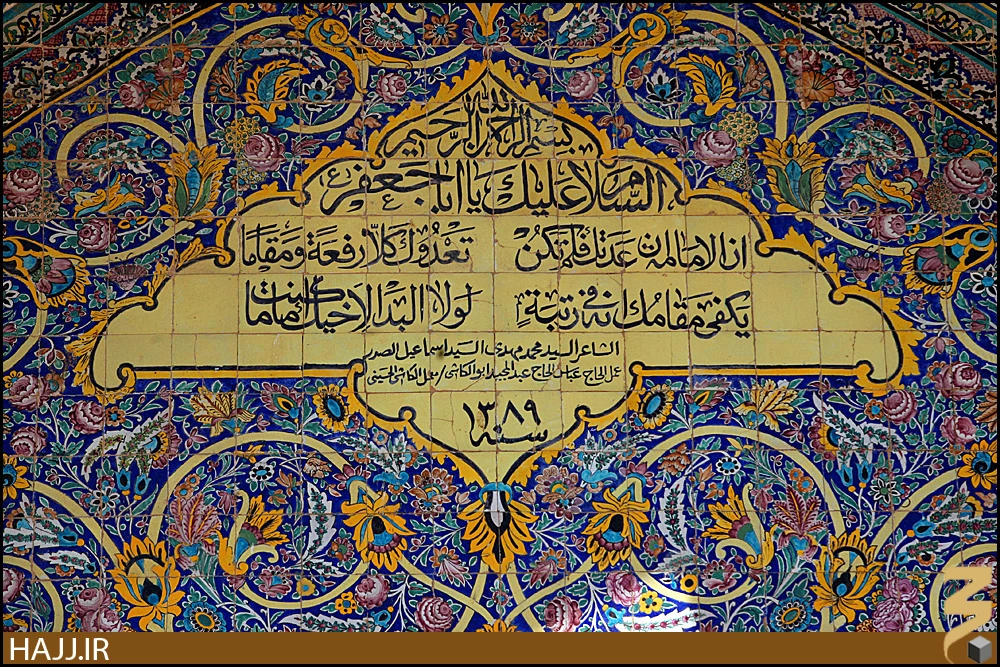 بسم الله الرحمن الرحيم
السلام عليك يا ابا جعفر ع
ان الامامة ان عدتك فلم تكن تعدوك كلا رفعة ومقاما
يكفي مقامك انه في رتبة لولا البدا لاخيك كنت اماما
الشاعر السيد محمد مهدي السيد اسماعيل الصدر
عمل الحاج عباس الحاج عبد المجيد
سنة ١٣٨٩
HAJJ.IR